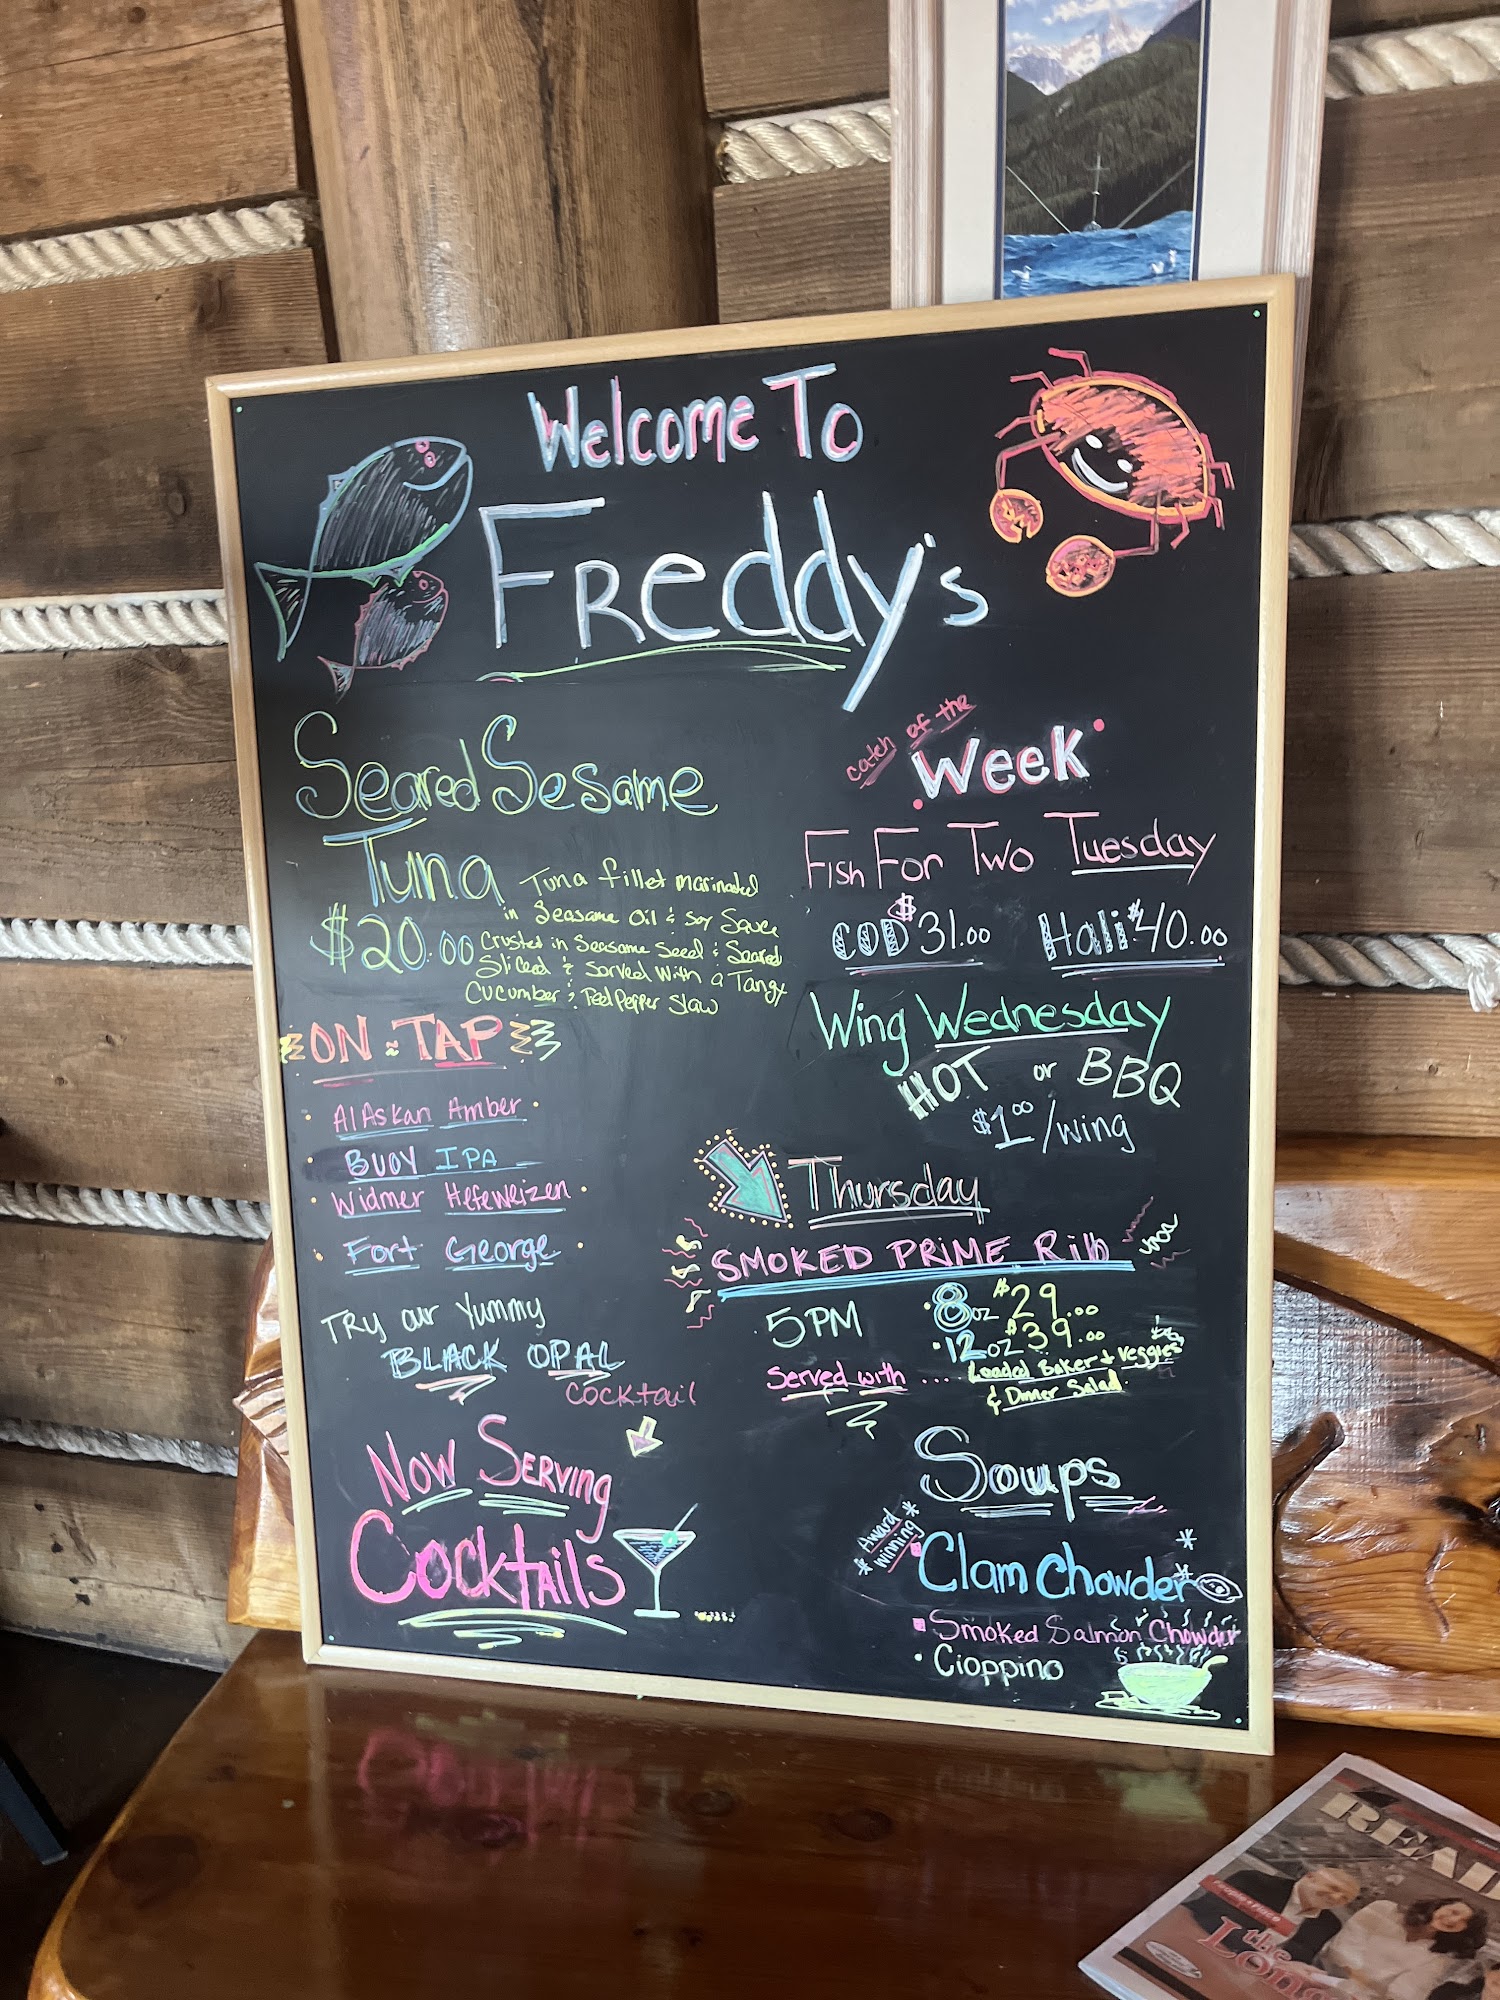 Welcome To
Freddy's
Seared Sesame
Tuna
$20.00
Tuna fillet marinated
in Seasame Oil & Soy Sauce
Crusted in Seasame Seed & Seared
Sliced & Served With a Tangy
Cucumber & Red Pepper Slaw
ON TAP
Alaskan Amber
Buoy IPA
Widmer Hefeweizen
Fort George
Try our Yummy
BLACK OPAL
Cocktail
Now Serving
Cocktails
Catch of the
Week
Fish For Two Tuesday
COD $31.00 Hali $40.00
Wing Wednesday
HOT or BBQ
$1.00/wing
Thursday
SMOKED PRIME Rib
5PM
8oz $29.00
12oz $39.00
Served with ... Loaded Baker + Veggies
& Dinner Salad
Soups
Award
Winning
Clam Chowder
Smoked Salmon Chowder
Cioppino
READ
the